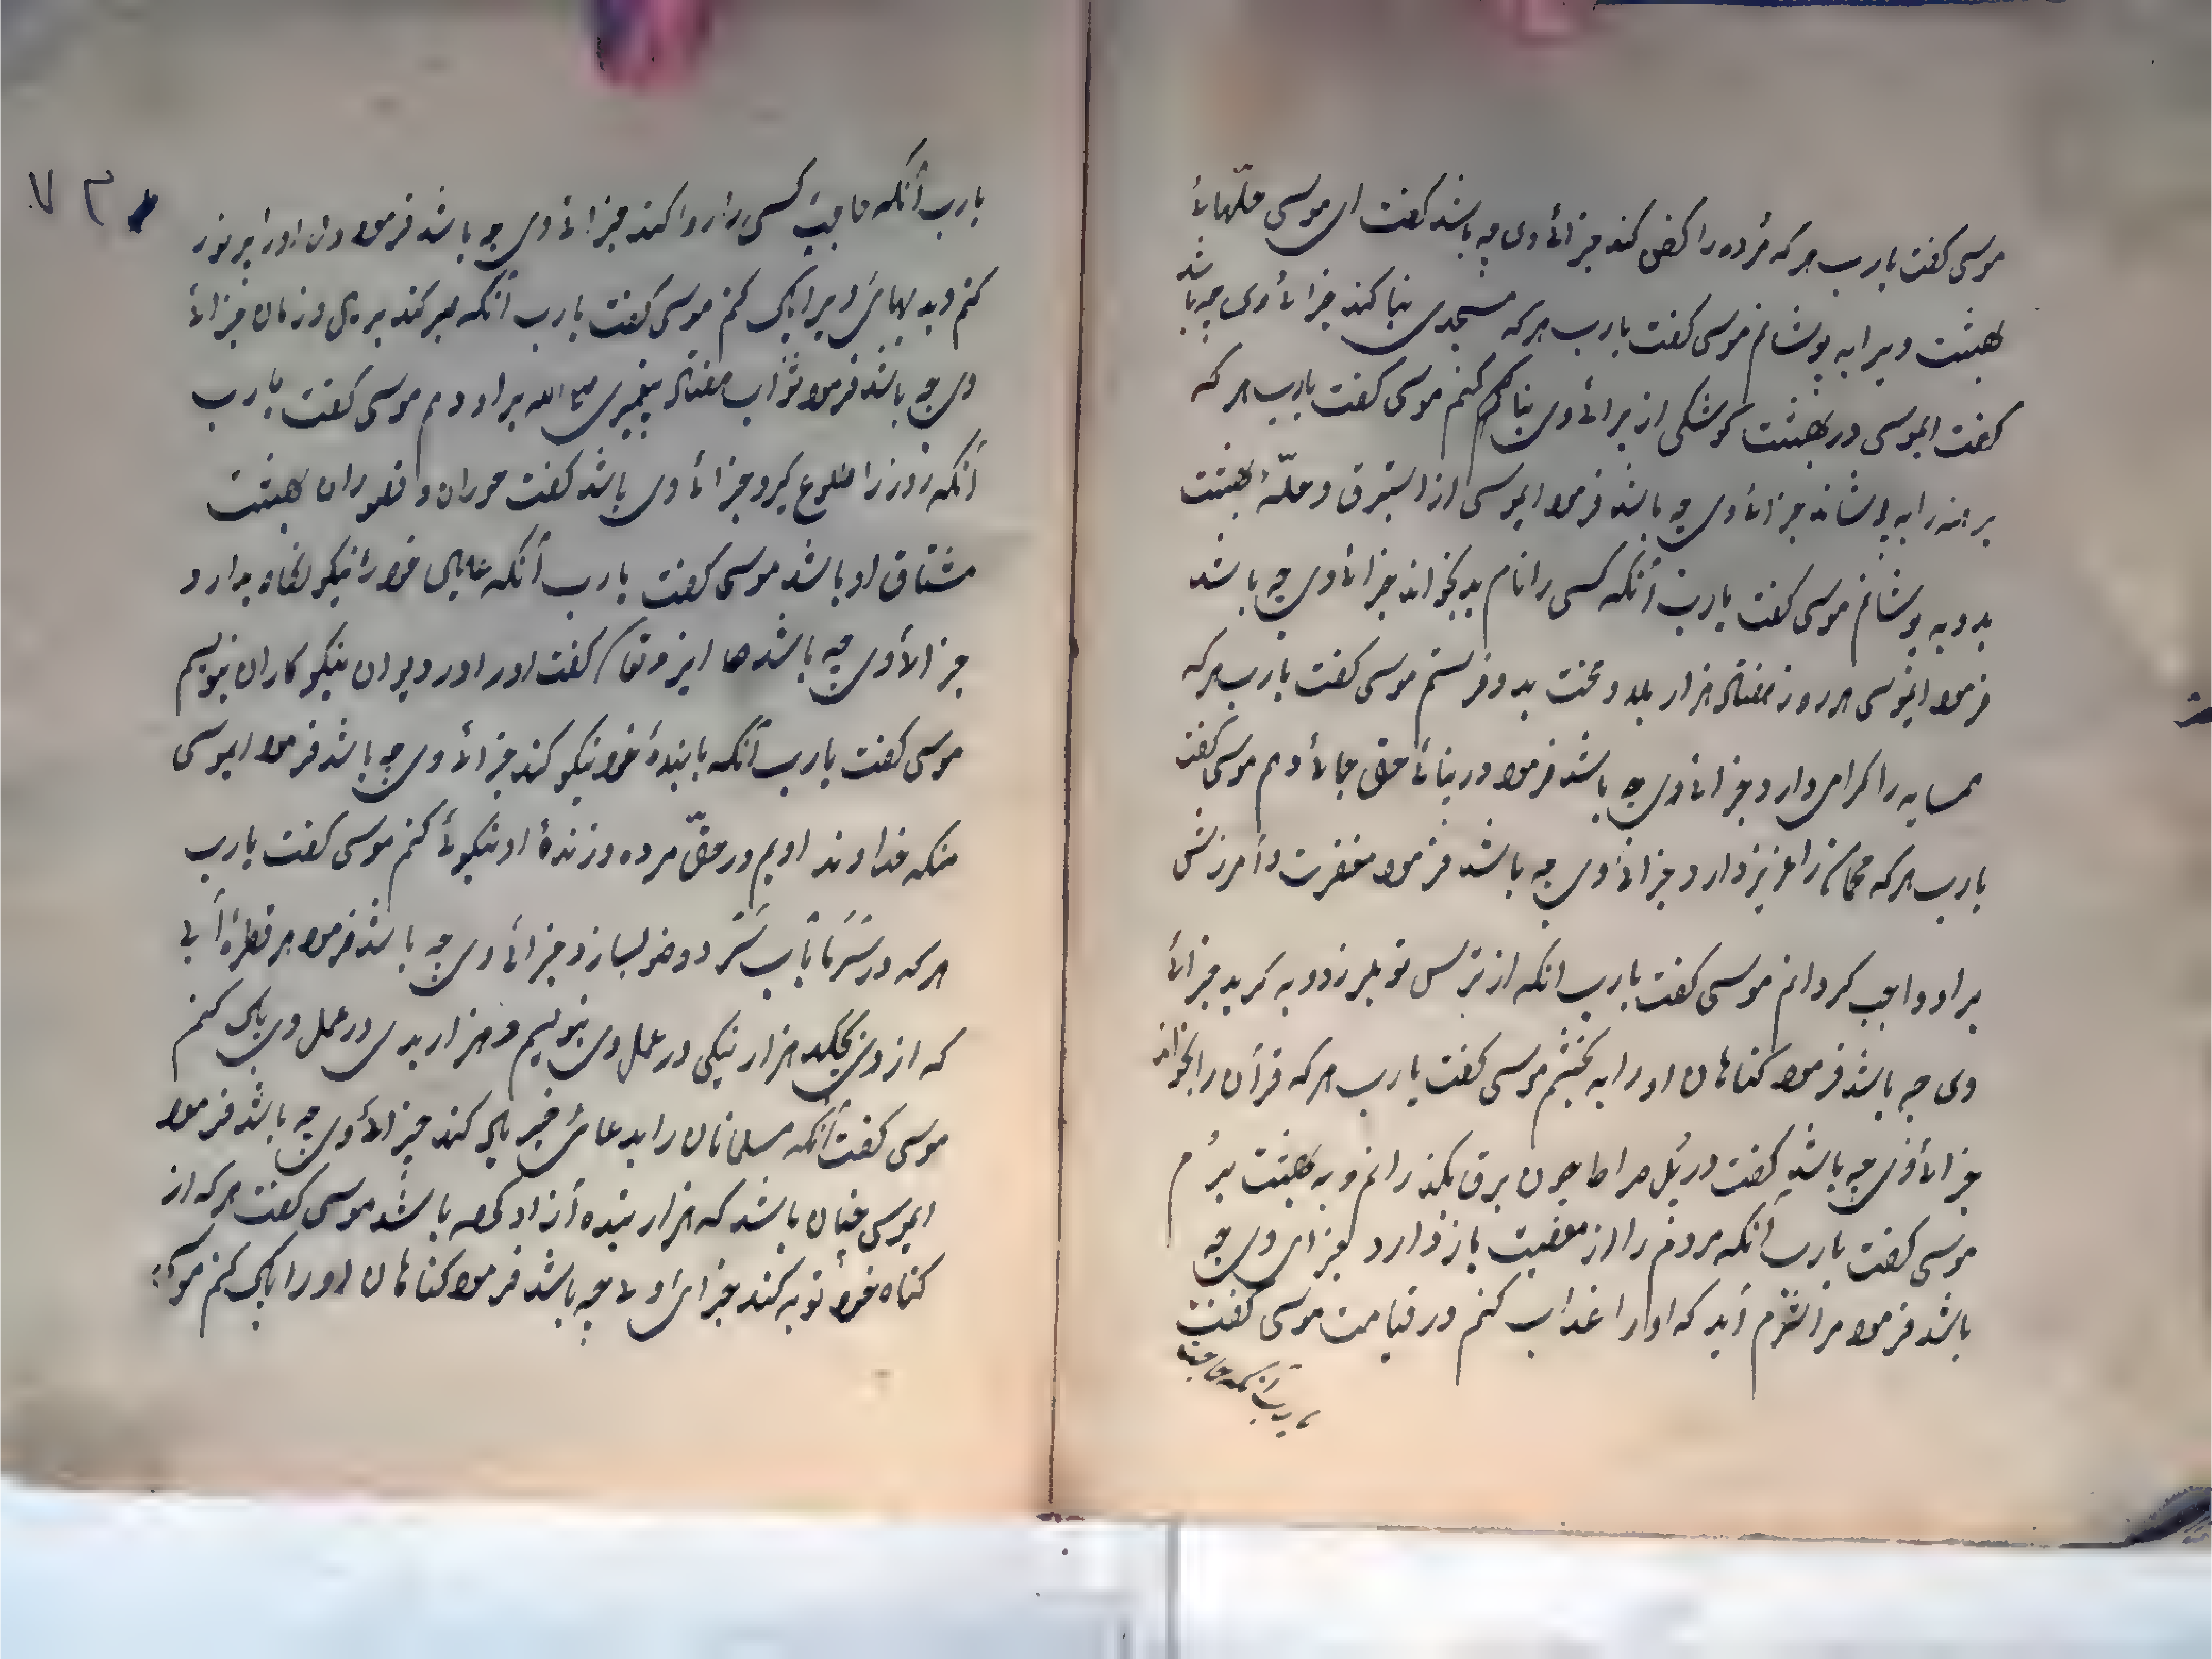 موسی کفت یارب هر که مُرده را کفن کند جزائ وی چه باشد کفت ای موسی حلّهائ
بهشت ویرا به پوشانم موسی کفت یارب هرکه مسجدی بنا کند جزائ وی چه باشد
کفت ایموسی در بهشت کوشکی از برائ وی بنا کنم موسی کفت یارب هر که
برهنه را به پوشاند جزائ وی چه باشد فرمود ایموسی از استبرق و حلّهٔ بهشت
بدو به پوشانم موسی کفت یارب آنکه کسی را نام بد بخواند جزائ وی چه باشد
فرمود ایموسی هر روز هفتاد هزار بلا و محنت بدو فرستم موسی کفت یارب هرکه
همسایه را کرامی دارد جزائ وی چه باشد فرمود در بنائ حق جائ دهم موسی کفت
یارب هرکه مهمان را عزیز دارد جزائ وی چه باشد فرمود مغفرت و آمرزش
بر او واجب کردانم موسی کفت یارب انکه از ترس تو بلرزد و به کرید جزائ
وی چه باشد فرمود کناهان او را به بخشم موسی کفت یارب هرکه قرآن را بخواند
جزائ وی چه باشد کفت در پُل صراط چون برق بکذرانم و به بهشت برُم
موسی کفت یارب آنکه مردم را از معصیت باز دارد جزای وی چه
باشد فرمود مرا شرم آید که او را عذاب کنم در قیامت موسی کفت
یارب آنکه حاجت
۷۳
یارب آنکه حاجت کسی را روا کند جزائ وی چه باشد فرمود دل او را پر نور
کنم و بدیهای ویرا پاک کنم موسی کفت یارب آنکه صبر کند بر بدی زمان جزائ
وی چه باشد فرمود ثواب هفتاد پیغمبری بر او دهم موسی کفت یارب
آنکه روز را طلوع کرد جزائ وی باشد کفت حوران و قصوران بهشت
مشتاق او باشد موسی کفت یارب آنکه عیال خود را نیکو نکاه دارد
جزائ وی چه باشد کفت او را در دیوان نیکو کاران نویسم
موسی کفت یارب آنکه با بندهٔ خود نیکو کند جزائ وی چه باشد فرمود ایموسی
منکه خداوند اویم در حقّ مرده و زندهٔ او نیکوئ کنم موسی کفت یارب
هرکه در سَرمَا بآب سَرد وضو بسازد جزائ وی چه باشد فرمود هر قطرهٔ آبی
که از وی بچکد هزار نیکی در عمل وی نویسم و هزار بدی در عمل وی پاک کنم
موسی کفت آنکه مسلمانان را بدعائ خیر یاد کند جزائ وی چه باشد فرمود
ایموسی چنان باشد که هزار بنده آزاد کرده باشد موسی کفت هرکه از
کناه خود توبه کند جزای وی چه باشد فرمود کناهان او را پاک کنم